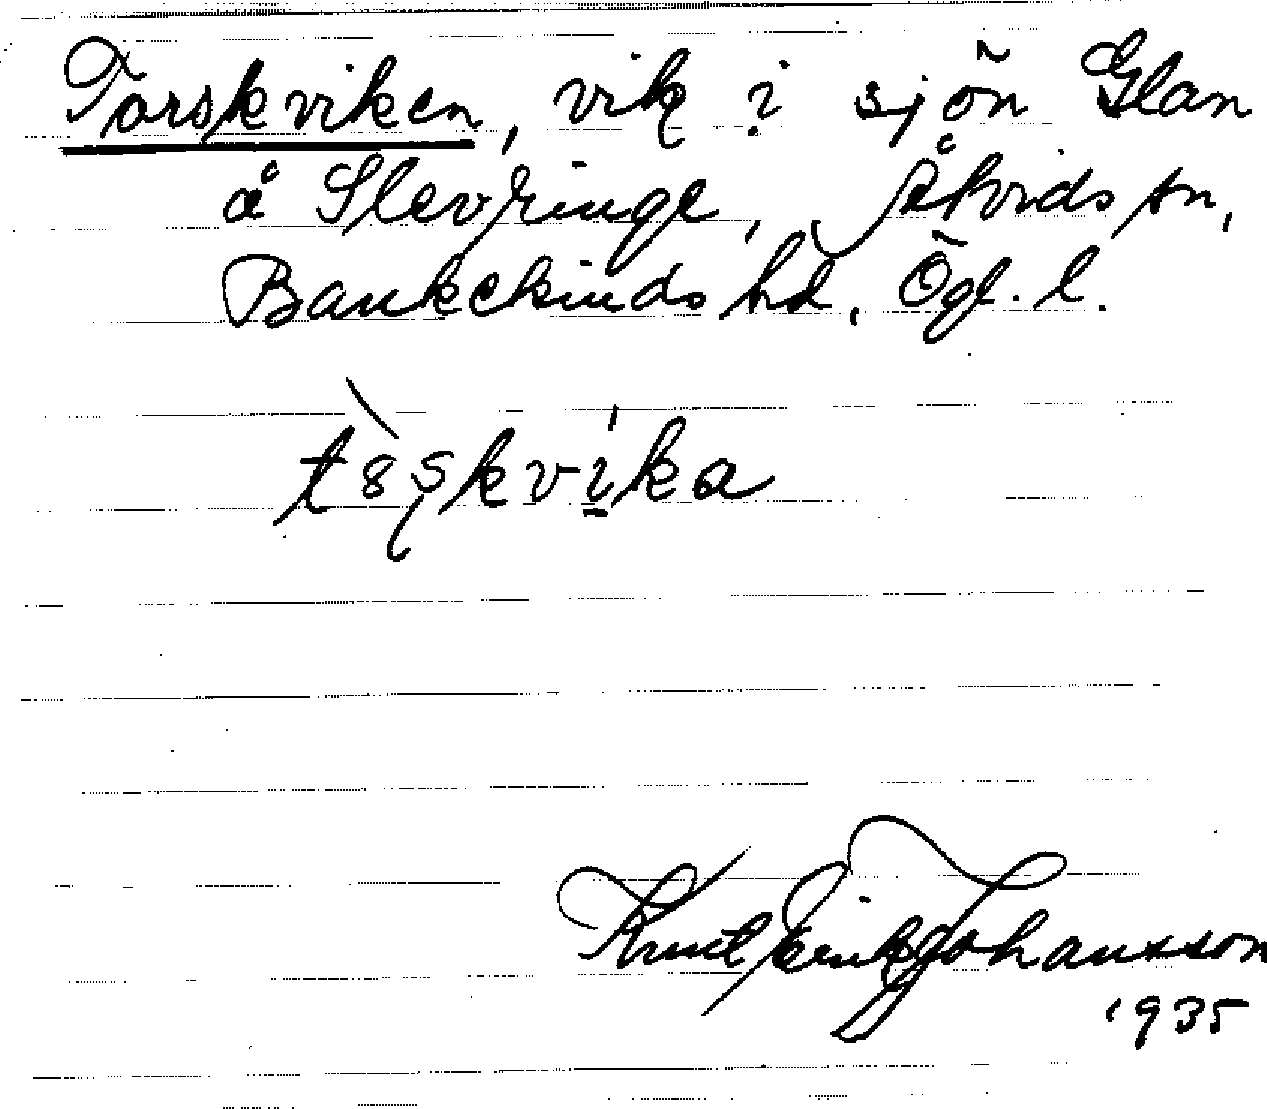 Torskviken, vik i sjön Glan
å Slevringe, Åtvids sn,
Bankekinds hd, Ögl. l.
Knut Erik Johansson
1935